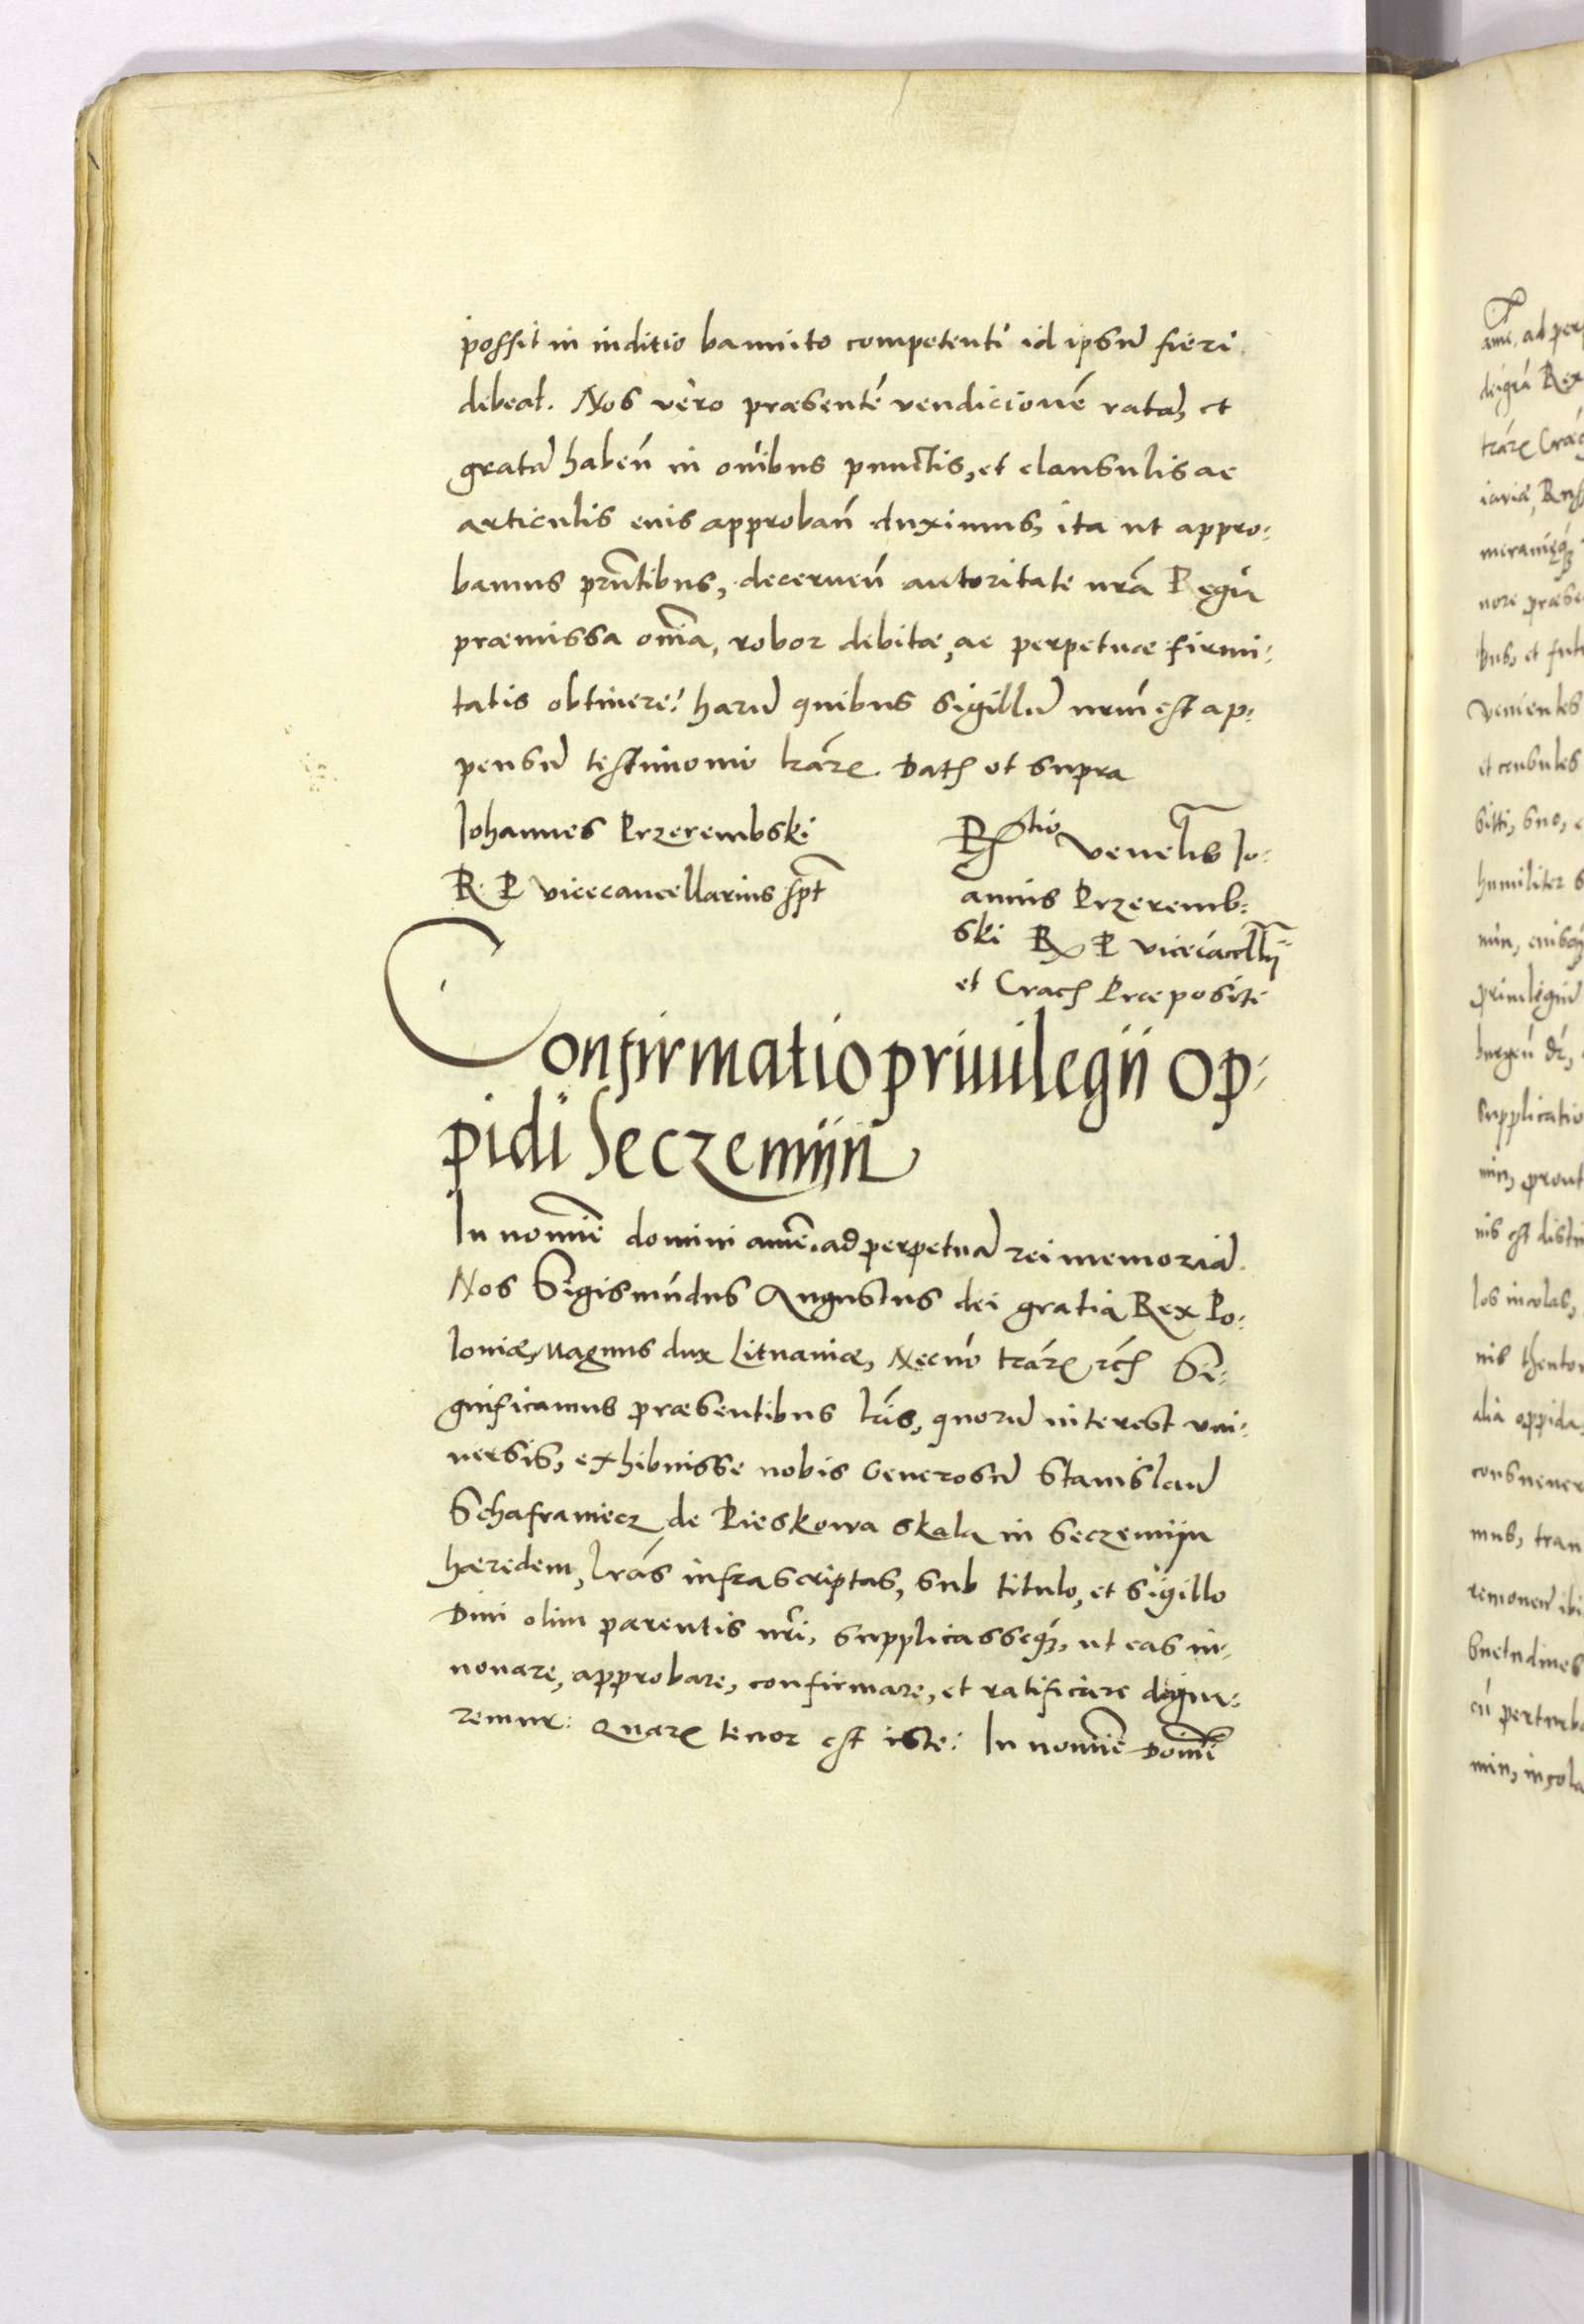 possit in iuditio bannito competenti id ipsū fieri
debeat. Nos vero præsentē vendicionē ratā, et
gratā habeñ in oībus punctis, et clausulis ac
articulis eius approbañ duximus, ita ut appro:
bamus pr̃ntibus, decerneñ autoritate nr̃a Regia
præmissa om̃ia, robor debitæ, ac perpetuæ firmi:
tatis obtinere: harū quibus sigillū nr̃um est ap:
pensū testimonio lr̃arꝝ. Datʒ ut supra
Johannes Przerembski
R. P. vicecancellarius spt
R^tio venelis Jo:
annis Przeremb:
ski R P vicecācellrij
et Cracʒ Præpositi
Confirmatio priuilegii op:
pidi Seczemijn
In nomīe domini amē. ad perpetuā rei memoriā.
Nos Sigismūdus Augustus dei gratia Rex Po:
loniæ, Magnus dux Lituaniæ, Necnō tr̃arꝝ rc̃ Si:
gnificamus præsentibus lr̃is, quorū interest vni:
uersis, exhibuisse nobis Generosū Stanislaū
Schafraniecz de Pieskowa skala in Seczemijn
hæredem, lr̃as infrascriptas, sub titulo, et sigillo
Diui olim parentis nr̃i, supplicasseqʒ, ut eas in:
nouare, approbare, confirmare, et ratificare digna:
remur: Quarꝝ tenor est iste: In nomīe Domīi
ame, ad per
dei gr̃a Rex
tr̃arꝝ Crac
iauiæ, Russ
meraniæqʒ
nore præse
bus, et futu
Venientes
et consules
sitti, suo, e
humiliter s
min, eiusqʒ
priuilegiū
burgeñ
supplicatio
min, prout
nis est distin
los incolas,
nis thento
alia oppida
consueuer
mus, tran
remouen ibi
suetudines
cū perturba
min, incola